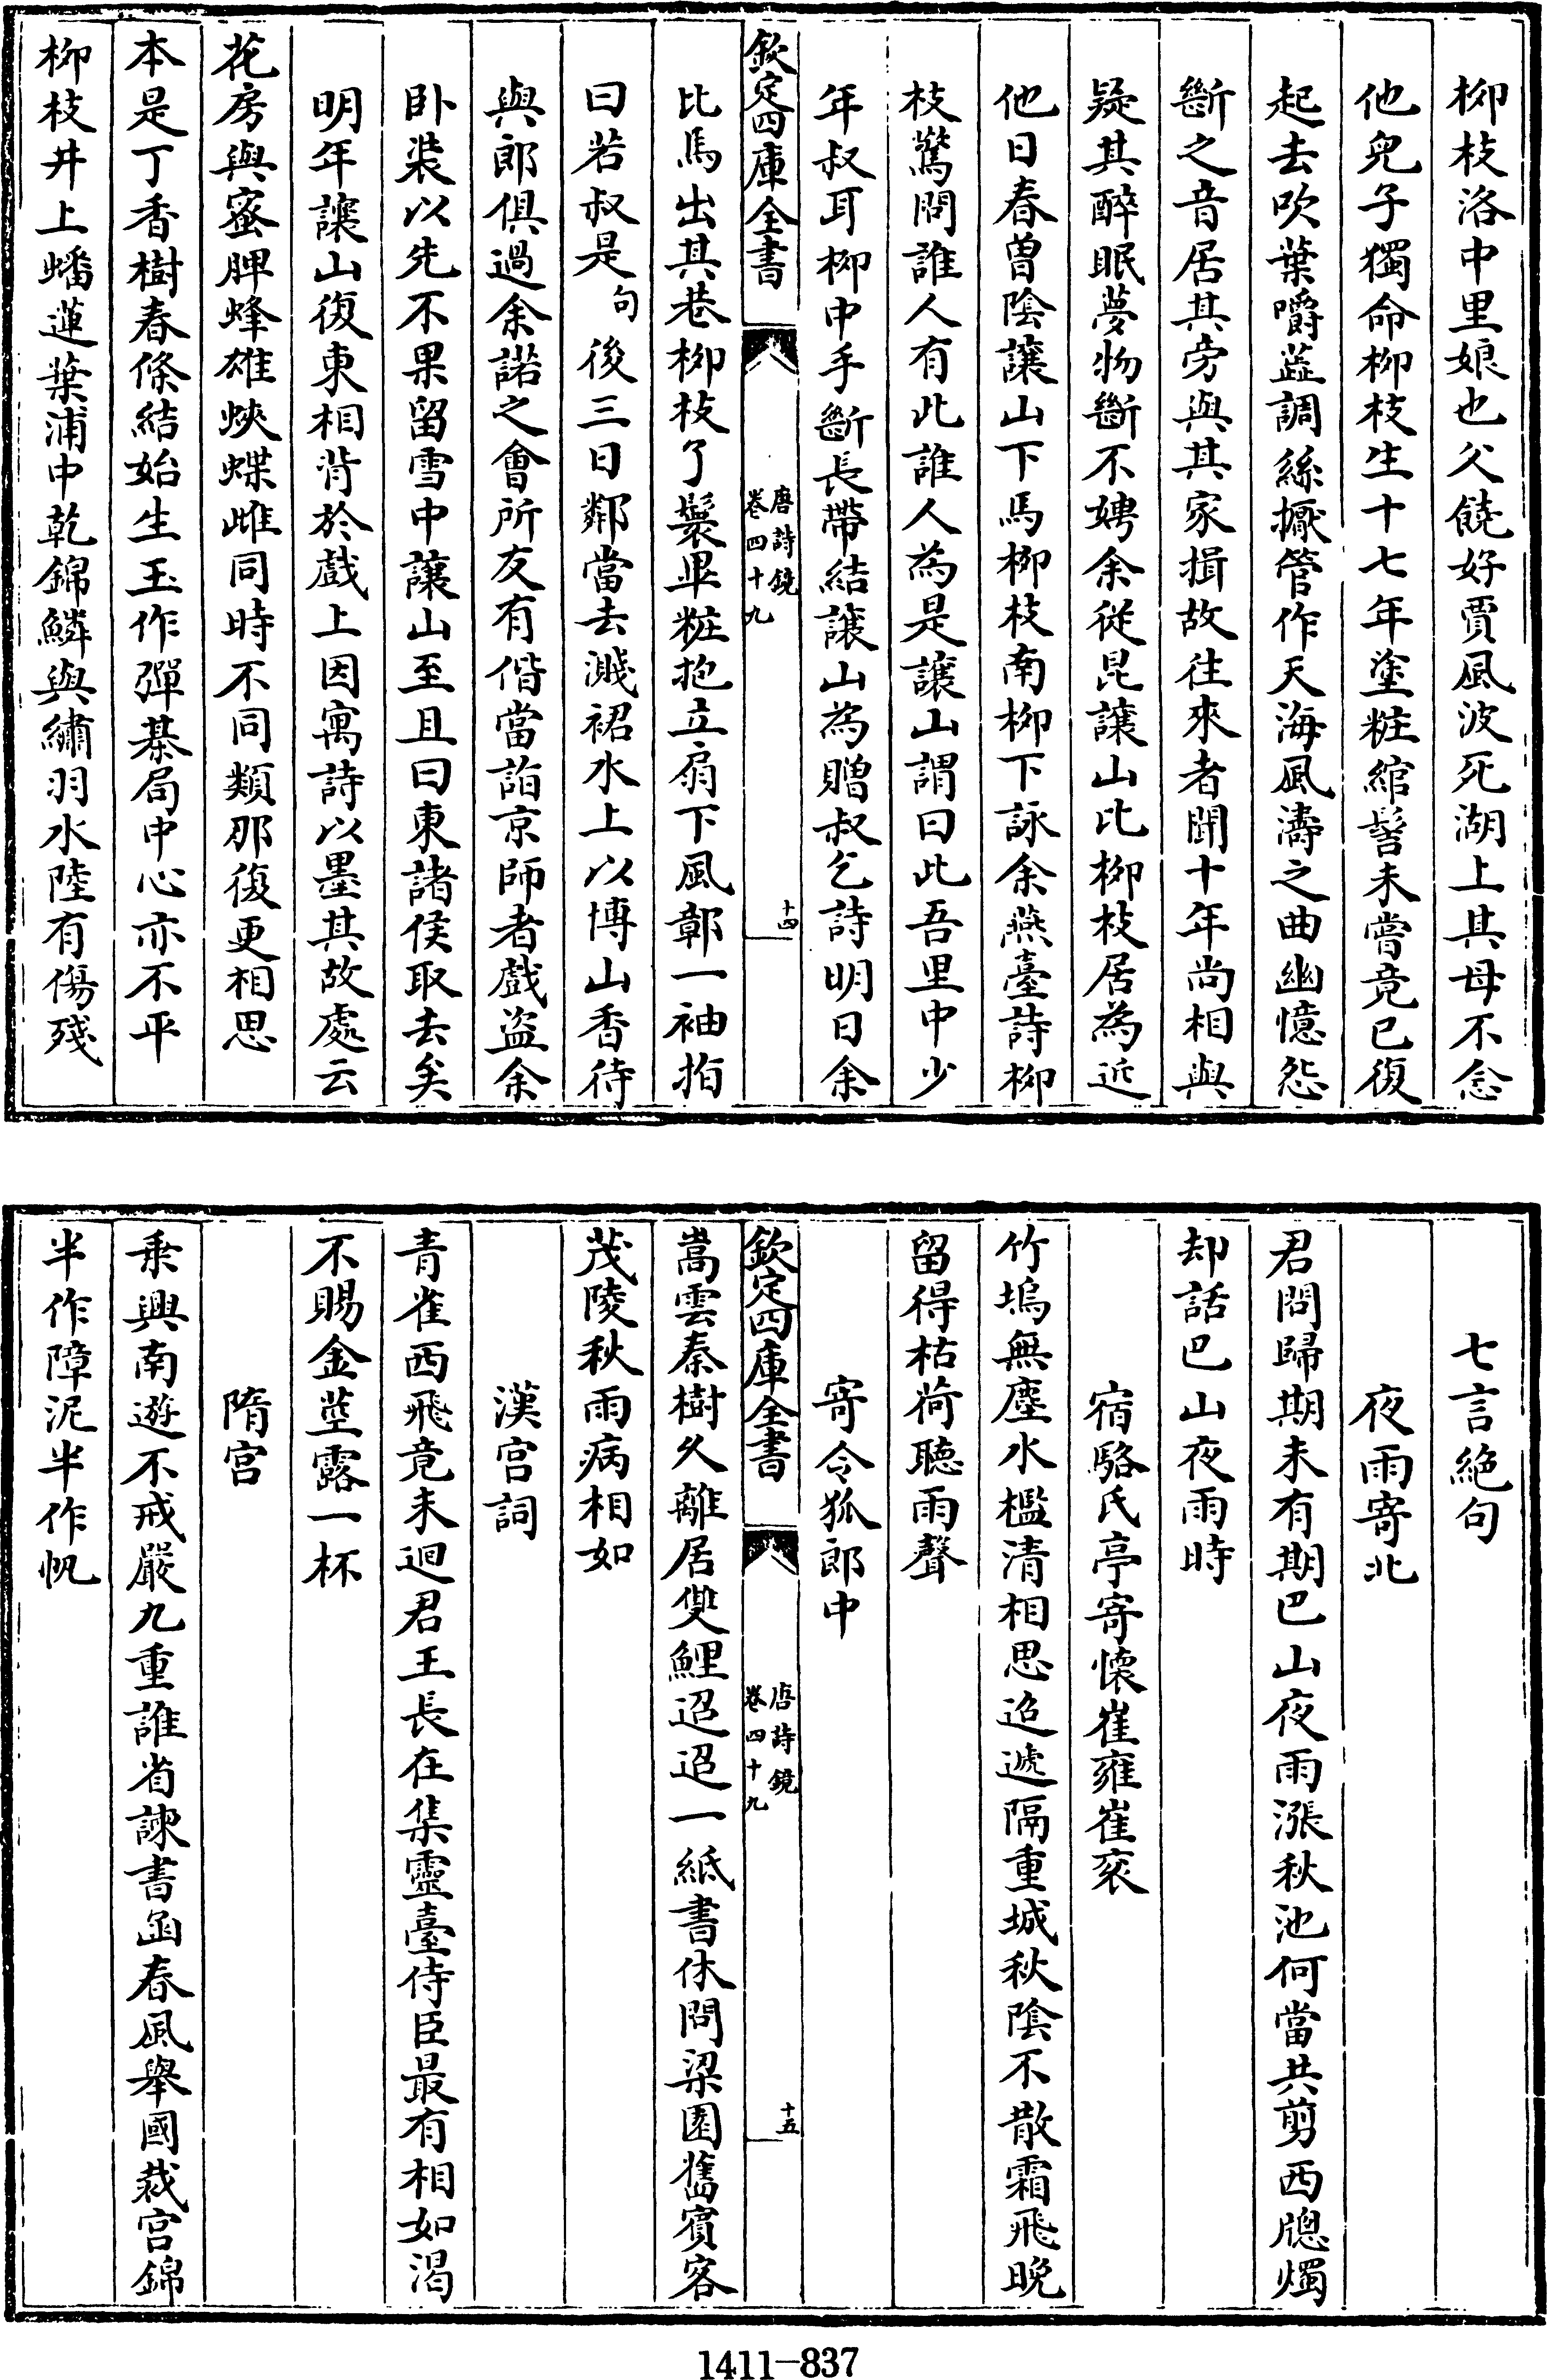 柳枝洛中里娘也父饒好賈風波死湖上其母不念
他兒子獨命柳枝生十七年塗粧綰髻未嘗竟已復
起去吹葉嚼蕋調絲擫管作天海風濤之曲幽憶怨
斷之音居其旁與其家揖故往來者聞十年尚相與
疑其醉眠夢物斷不娉余從昆讓山比柳枝居為近
他日春曽陰讓山下馬柳枝南柳下詠余燕臺詩柳
枝驚問誰人有此誰人為是讓山謂曰此吾里中少
年叔耳柳中手斷長帶結讓山為贈叔乞詩明日余
欽定四庫全書
唐詩鏡
卷四十九
十四
比馬出其巷柳枝丫鬟畢粧抱立扇下風鄣一袖指
曰若叔是句後三日鄰當去濺裙水上以博山香待
與郎俱過余諾之會所友有偕當詣京師者戲盜余
卧裝以先不果留雪中讓山至且曰東諸侯取去矣
明年讓山復東相背於戲上因寓詩以墨其故處云
花房與蜜脾蜂雄蛺蝶雌同時不同類那復更相思
本是丁香樹春條結始生玉作彈棊局中心亦不平
柳枝井上蟠蓮葉浦中乾錦鱗與繡羽水陸有傷殘
七言絶句
夜雨寄北
君問歸期未有期巴山夜雨漲秋池何當共剪西牕燭
却話巴山夜雨時
宿駱氏亭寄懷崔雍崔衮
竹塢無塵水檻清相思迢遞隔重城秋陰不散霜飛晚
留得枯荷聽雨聲
寄令狐郎中
欽定四庫全書
唐詩鏡
卷四十九
十五
嵩雲秦樹久離居雙鯉迢迢一紙書休問梁園舊賓客
茂陵秋雨病相如
漢宮詞
青雀西飛竟未迴君王長在集靈臺侍臣最有相如渴
不賜金莖露一杯
隋宮
乘興南遊不戒嚴九重誰省諫書函春風舉國裁宮錦
半作障泥半作帆
1411—837